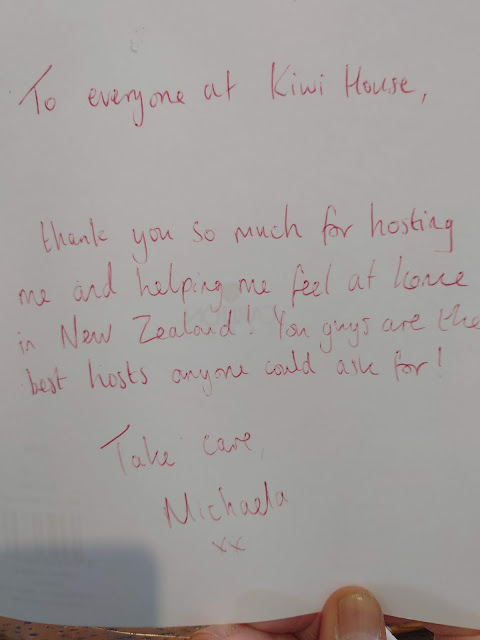 To everyone at Kiwi House,
thank you so much for hosting
me and helping me feel at home
in New Zealand! You guys are the
best hosts anyone could ask for!
Take care,
Michaela
xx